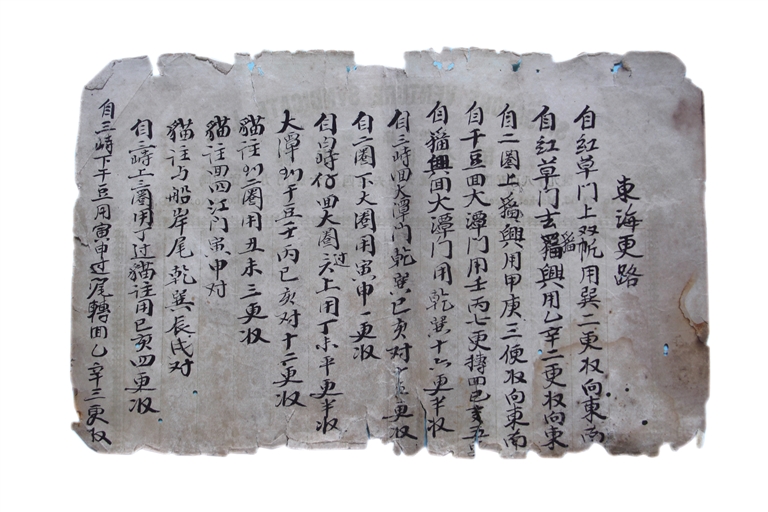 東海更路
自紅草门上双帆用巽二更收向東南
自紅草门去猫興用乙辛二更收向東
自二圈上猫興用甲庚三便收向東南
自干豆回大潭门用壬丙七更轉回巳亥五
自猫興回大潭门用乾巽十六更半收
自三峙回大潭门乾巽巳亥对十五更收
自二圈下大圈用寅申一更收
自白峙仔回大圈过上用丁未平更半收
大潭刈干豆壬丙巳亥对十二更收
猫註刈二圈用丑未三更收
猫註回四江门寅申对
猫註与船岸尾乾巽辰戌对
自三峙上三圈用丁过猫註用巳亥四更收
自三峙下干豆用寅申过尾轉回乙辛三更收